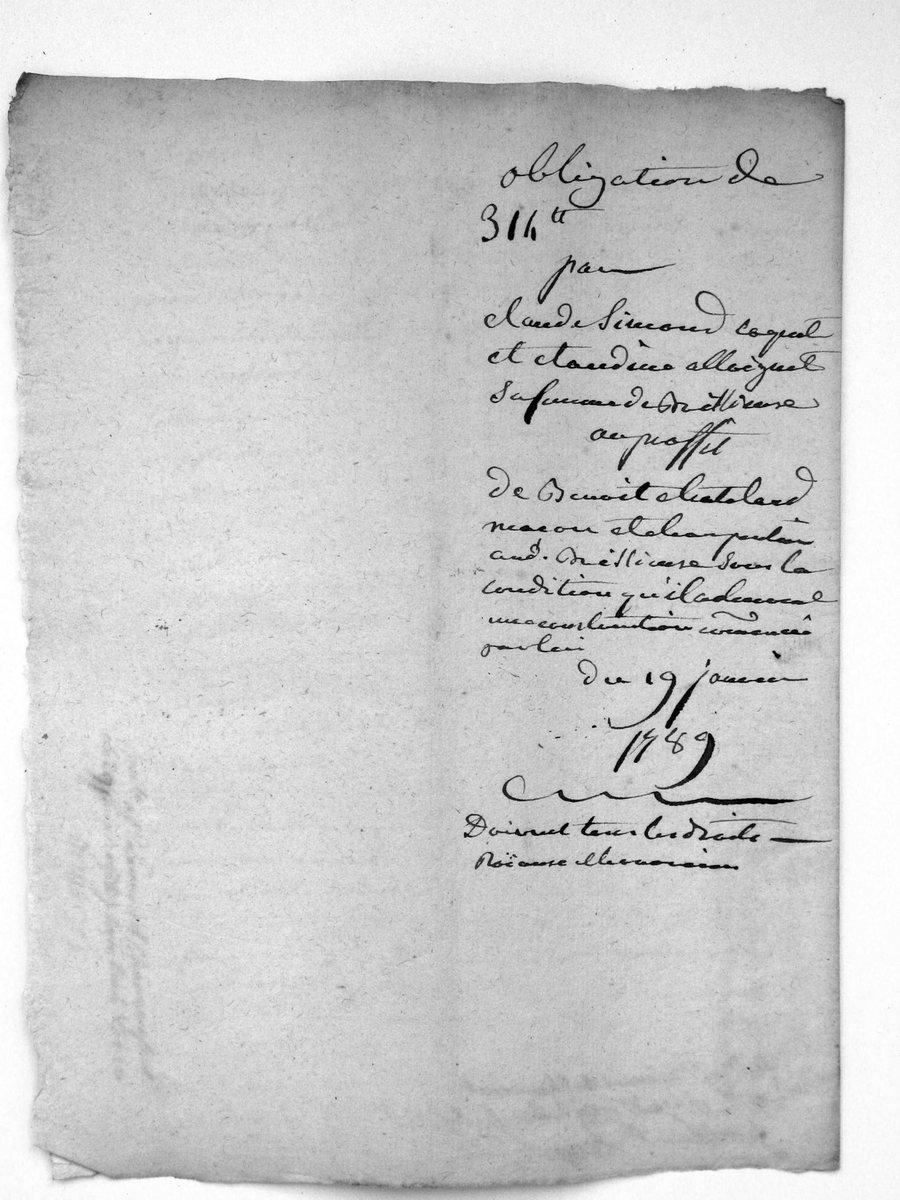 obligation de
314 tt
par
claude Simond coquet
et claudine alloignet
sa femme de Brillieuse
au proffit
de Benoit chatelard
macon et charpentier
aud. Brillieuse sous la
condition qu'il
une construction commencée
par lui
du 19 janvier
1789
Doivent tous les droits